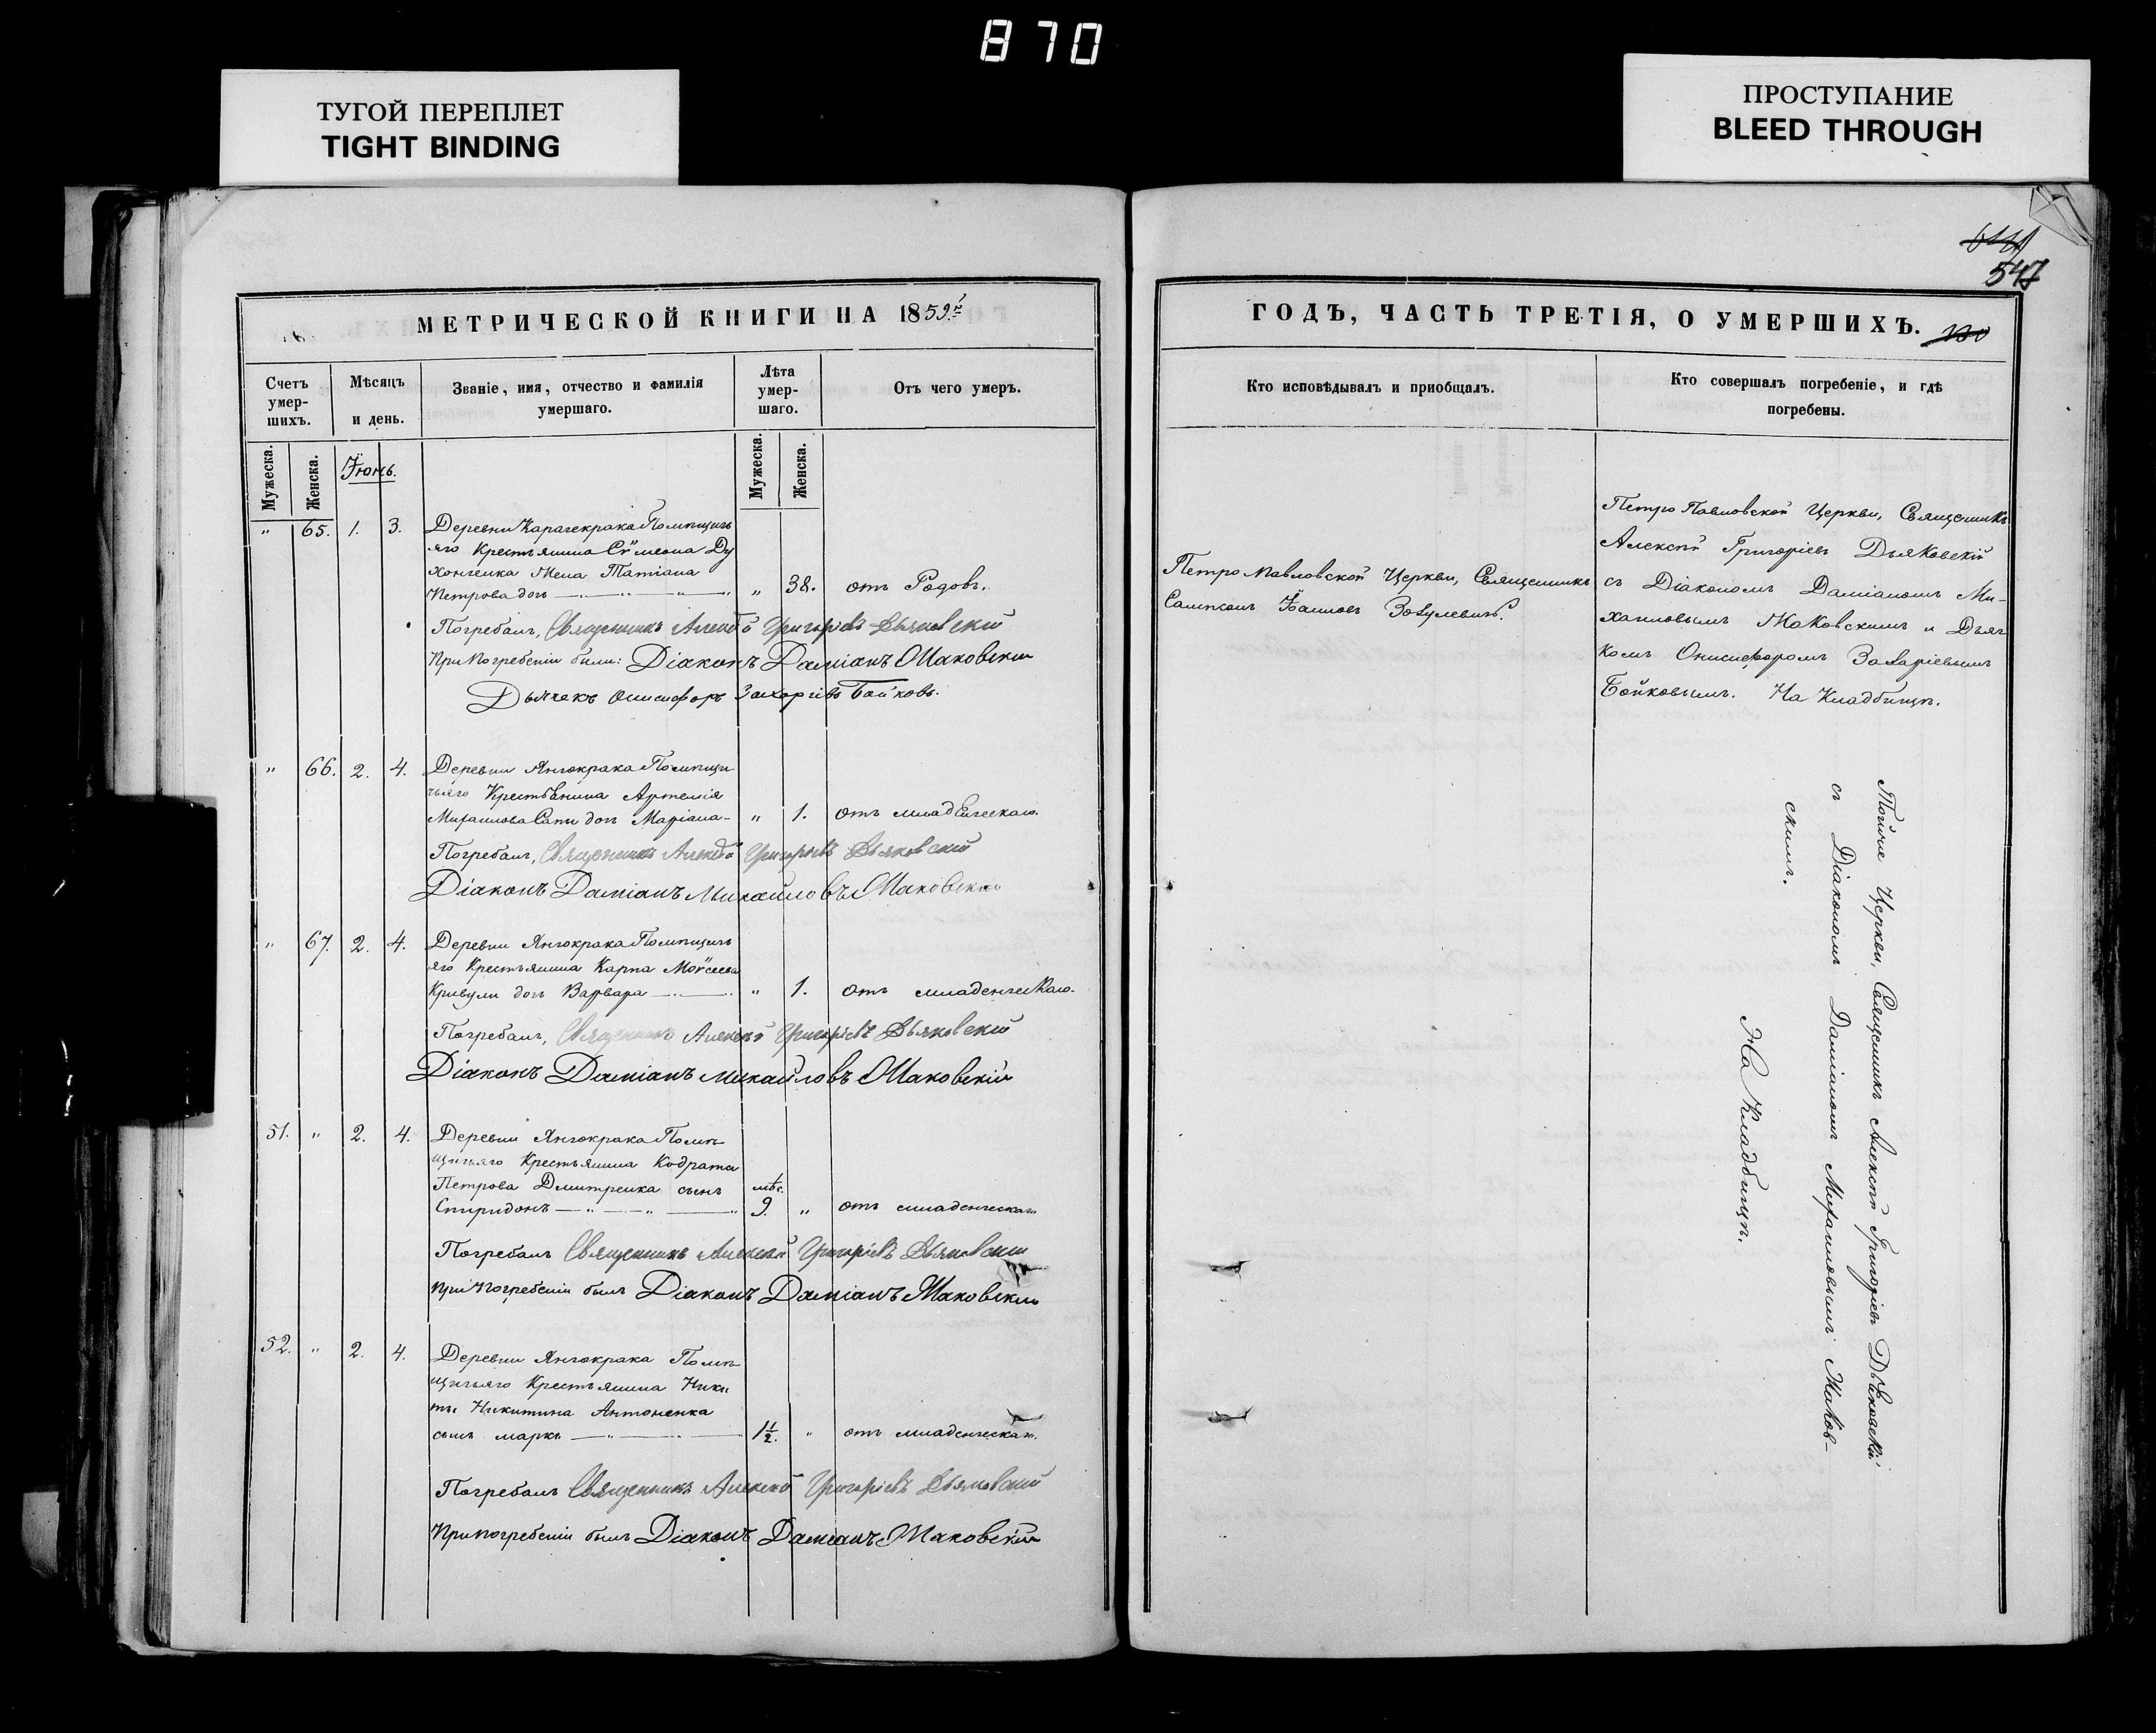 870
ТУГОЙ ПЕРЕПЛЕТ
TIGHT BINDING
ПРОСТУПАНИЕ
BLEED THROUGH
547
МЕТРИЧЕСКОЙ КНИГИ НА 1859 г.
Счетъ умер-шихъ.
Мѣсяцъ и день.
Званіе, имя, отчество и фамилія умершаго.
Лѣта умер-шаго.
Отъ чего умеръ.
Мужеска.
Женска.
Іюнь.
Мужеска.
Женска.
" 65. 1. 3. Деревни Карагекрака Помѣщичь
яго Крестьянина Сѵмеона Ду
хонченка Жена Татіана
Петрова дочь " 38. отъ Родовъ.
Погребалъ, Священникъ Алексѣй Григорьевъ Дьяковскій
При погребеніи были: Діаконъ Даміанъ Маковскій
Дьячекъ Онисифоръ Захаріевъ Бойковъ.
" 66. 2. 4. Деревни Янчокрака Помѣщи-
чьяго Крестьянина Артемія
Михаилова Сапи дочь Маріана- " 1. отъ младенческаго.
Погребалъ, Священникъ Алексѣй Григорьевъ Дьяковскій
Діаконъ Даміанъ Михайловъ Маковскій
" 67. 2. 4. Деревни Янчокрака Помѣщичь
яго Крестьянина Карпа Моѵсеева
Кривули дочь Варвара " 1. отъ младенческаго.
Погребалъ, Священникъ Алексѣй Григоріевъ Дьяковскій
Діаконъ Даміанъ Михайловъ Маковскій
51. " 2. 4. Деревни Янчокрака Помѣ-
щичьяго Крестьянина Кодрата
Петрова Дмитренка сынъ мѣс.
Спиридонъ 9. " отъ младенческаго
Погребалъ Священникъ Алексѣй Григоріевъ Дьяковскій
При Погребеніи былъ Діаконъ Даміанъ Маковскій
52. " 2. 4. Деревни Янчокрака Помѣ-
щичьяго Крестьянина Ники
ты Никитина Антоненка
сынъ Маркъ 1 1/2. " отъ младенческаго.
Погребалъ Священникъ Алексѣй Григоріевъ Дьяковскій
При погребеніи былъ Діаконъ Даміанъ Маковскій
ГОДЪ, ЧАСТЬ ТРЕТІЯ, О УМЕРШИХЪ.
Кто исповѣдывалъ и приобщалъ.
Кто совершалъ погребеніе, и гдѣ
погребены.
Петро Павловской Церкви, Священникъ
Петро Павловской Церкви, Священникъ
Алексѣй Григоріевъ Дьяковскій
съ Діакономъ Даміаномъ Ми-
хаиловымъ Маковскимъ и Дьяч
комъ Онисифоромъ Захаріевымъ
Бойковымъ. На Кладбищѣ.
Тойже Церкви, Священникъ Алексѣй Григоріевъ Дьяковскій
съ Діакономъ Даміаномъ Михаиловымъ Маков-
скимъ.
На Кладбищѣ.